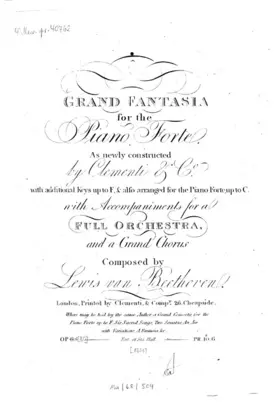 GRAND FANTASIA
for the
Piano Forte,
As newly constructed
by Clementi & Co.
with additional Keys up to F, & also arranged for the Piano Forte up to C.
with Accompaniments for a
FULL ORCHESTRA,
and a Grand Chorus
Composed by
Lewis van Beethoven.
London, Printed by Clementi, & Compy. 26, Cheapside.
Where may be had by the same Author a Grand Concerto for the
Piano Forte up to F, Six Sacred Songs, Two Sonatas, An Air
with Variations, A Fantasia &c
Ent. at Sta. Hall